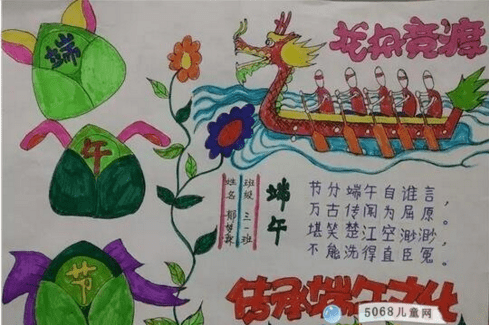 端
午
节
龙舟竞渡
班级 三一班
姓名
端午
节分端午自谁言，
万古传闻为屈原。
堪笑楚江空渺渺，
不能洗得直臣冤。
传承端午文化
5068儿童网